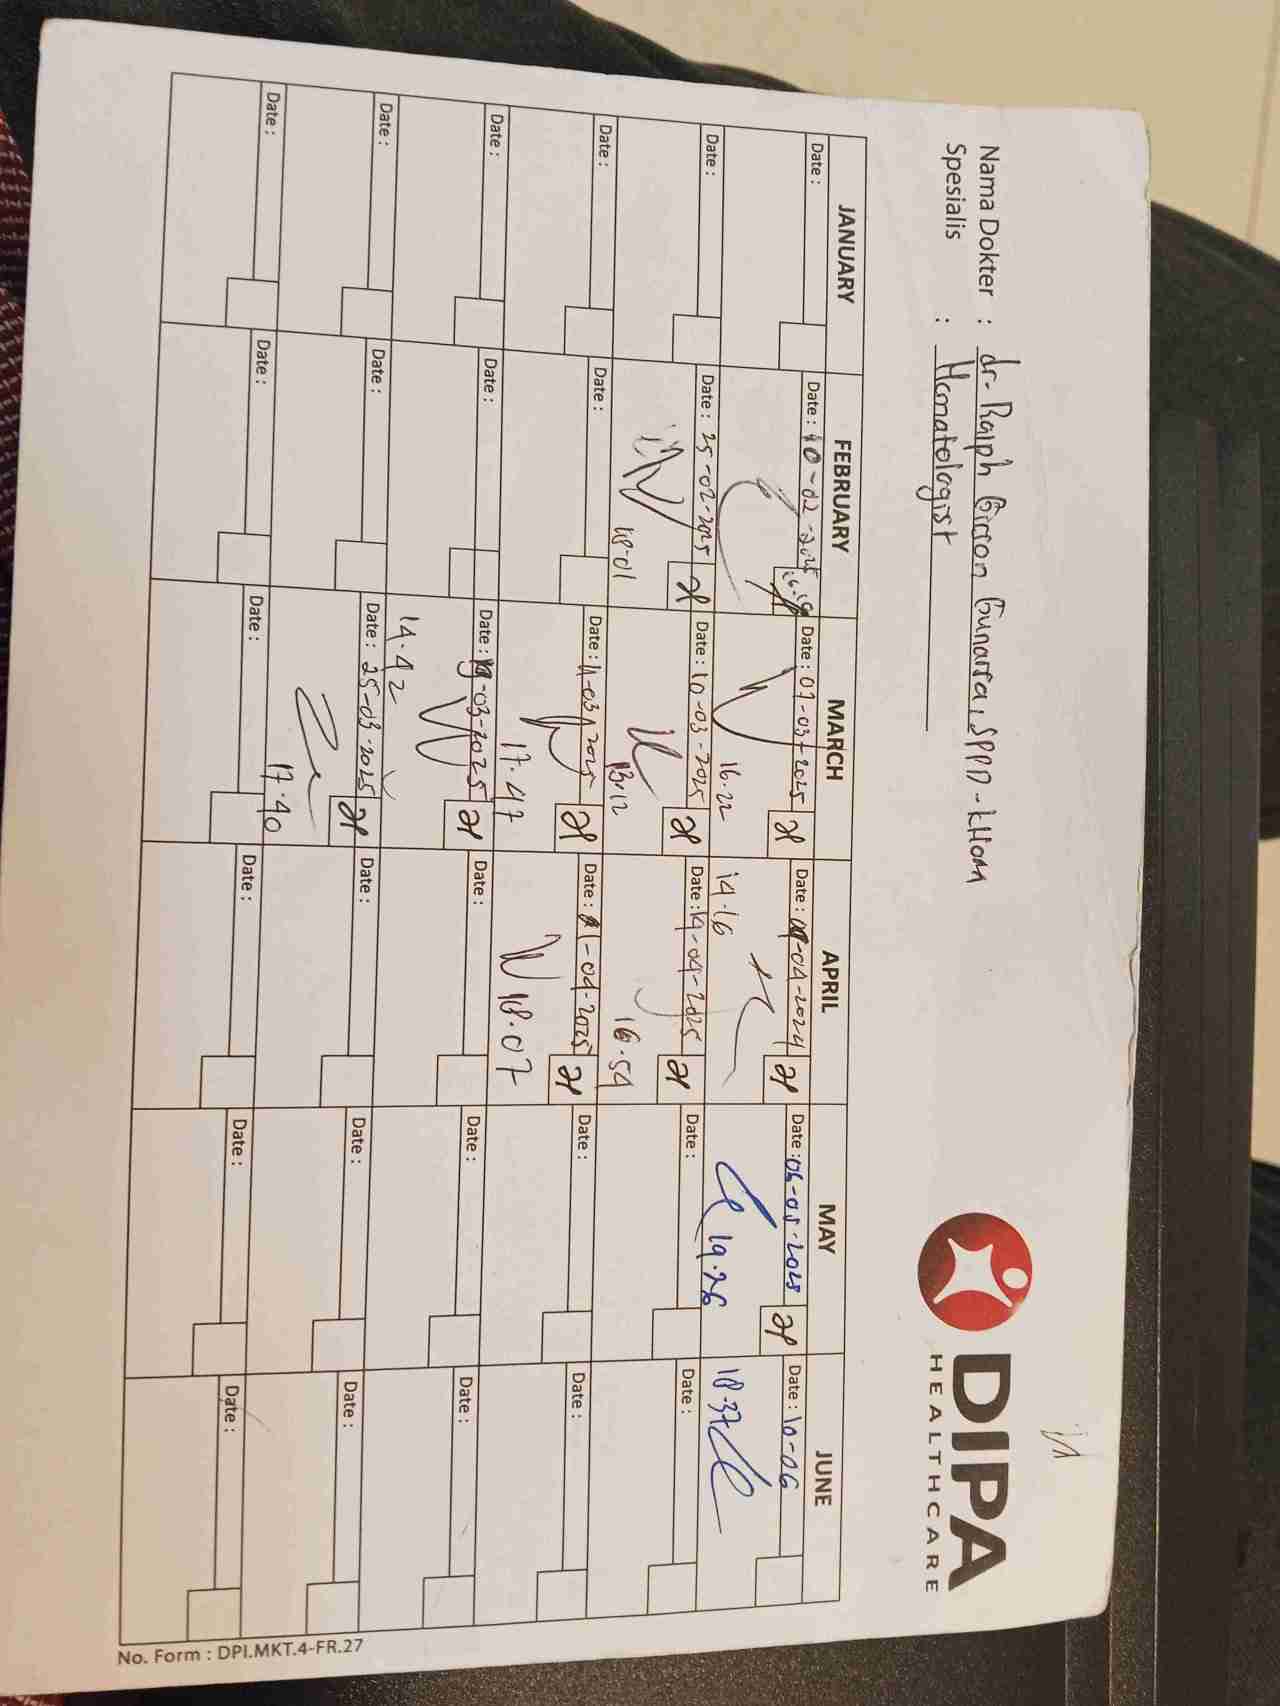 DIPA
HEALTHCARE
Nama Dokter : dr. Ralph Girson Gunarsa, SPPD-KHOM
Spesialis : Hematologist
JANUARY FEBRUARY MARCH APRIL MAY JUNE
Date : Date : 10-02-2025 Date : 07-03-2025 Date : 09-04-2024 Date : 06-05-2025 Date : 10-06
16.22 14.16 19.26 18.37
Date : Date : 25-02-2025 Date : 10-03-2025 Date : 14-04-2025 Date : Date :
18-01 13.12 16.54
Date : Date : Date : 11-03-2025 Date : 21-04-2025 Date : Date :
17.47 18.07
Date : Date : Date : 19-03-2025 Date : Date : Date :
14.42
Date : Date : Date : 25-03-2025 Date : Date : Date :
17.40
Date : Date : Date : Date : Date : Date :
No. Form : DPI.MKT.4-FR.27